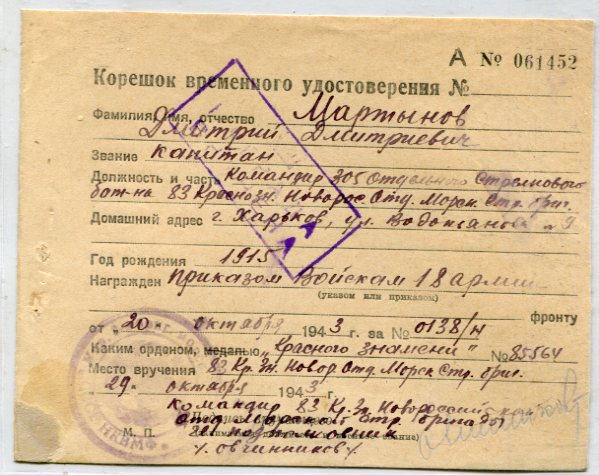 А № 061452
Корешок временного удостоверения №
Фамилия, имя, отчество Мартынов
Дмитрий Дмитриевич
Звание капитан
Должность и часть Командир 305 Отдельного Стрелкового
бат-на 83 Краснозн. Новорос. Отд. Морск. Стр. бриг.
Домашний адрес г. Харьков, ул.
Год рождения 1915
Награжден приказом Войскам 18 армии
(указом или приказом)
фронту
от "20" октября 1943 г. за № 0138/н
Каким орденом, медалью "Красного знамени" № 85564
Место вручения 83 Кр. Зн. Новор. Отд. Морск. Стр. бриг.
"29" октября 1943
командир 83 Кр. Зн. Новороссийской
отд. Морской Стр. бригады
М. П. подполковник
/Овчинников/
НКВМФ